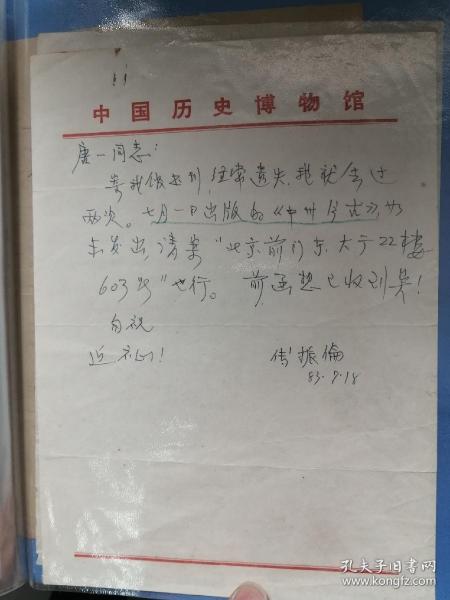 中国历史博物馆
唐一同志：
寄我馆书刊，经常遗失，我就去过
两次。七月一日出版的《中州今古》，如
未发出，请寄"北京前门东大街22楼
603号"也行。前函想已收到矣！
匆祝
近祉！ 傅振倫
83.7.18
孔夫子旧书网
www.kongfz.com